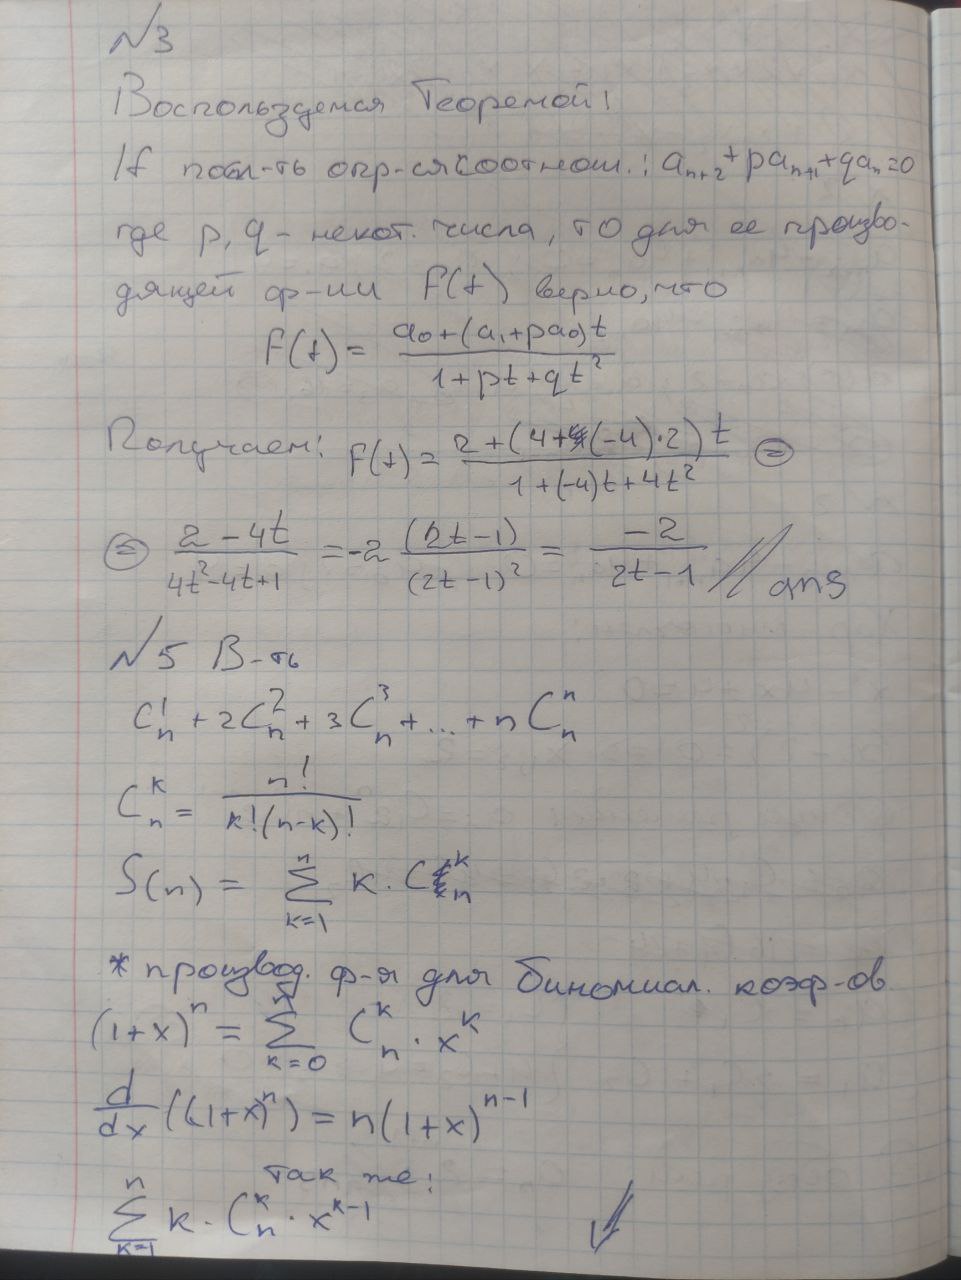 №3
Воспользуемся Теоремой!
If посл-ть опр-ся соотнош.: aₙ₊₂+paₙ₊₁+qaₙ=0
где p, q - некот. числа, то для ее произво-
дящей ф-ии F(t) верно, что
F(t) = (a₀+(a₁+pa₀)t)/(1+pt+qt²)
Получаем: F(t) = (2+(4+(-4)·2)t)/(1+(-4)t+4t²) ⊜
⊜ (2-4t)/(4t²-4t+1) = -2 (2t-1)/(2t-1)² = -2/(2t-1) // ans
№5 В-ть
Cₙ¹ + 2Cₙ² + 3Cₙ³ + ... + nCₙⁿ
Cₙᵏ = n!/(k!(n-k)!)
S(n) = ∑ₖ₌₁ⁿ k · Cₙᵏ
* производ. ф-я для биномиал. коэф-ов
(1+x)ⁿ = ∑ₖ₌₀ Cₙᵏ · xᵏ
d/dx ((1+x)ⁿ) = n(1+x)ⁿ⁻¹
так же:
∑ₖ₌₁ⁿ k · Cₙᵏ · xᵏ⁻¹